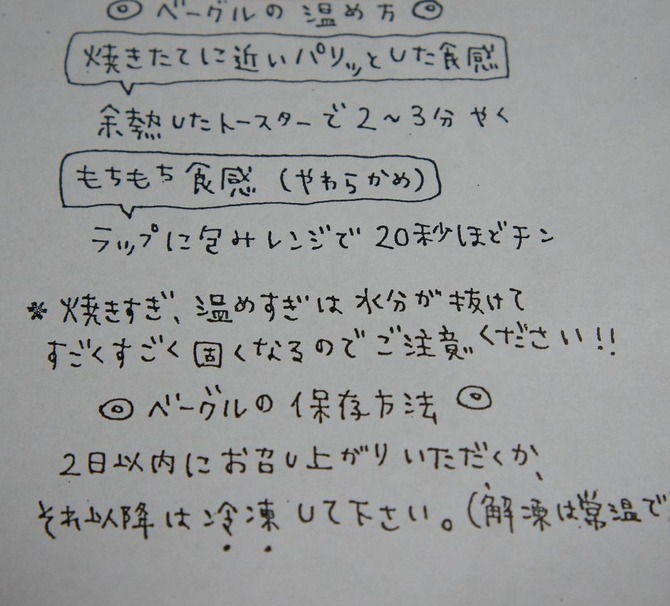 ◎ ベーグルの 温め方 ◎
焼きたてに近いパリッとした食感
余熱したトースターで2〜3分やく
もちもち食感 (やわらかめ)
ラップに包みレンジで 20秒ほどチン
* 焼きすぎ、温めすぎは水分が抜けて
すごくすごく固くなるのでご注意ください!!
◎ ベーグルの 保存方法 ◎
2日以内にお召し上がりいただくか、
それ以降は冷凍して下さい。(解凍は常温で